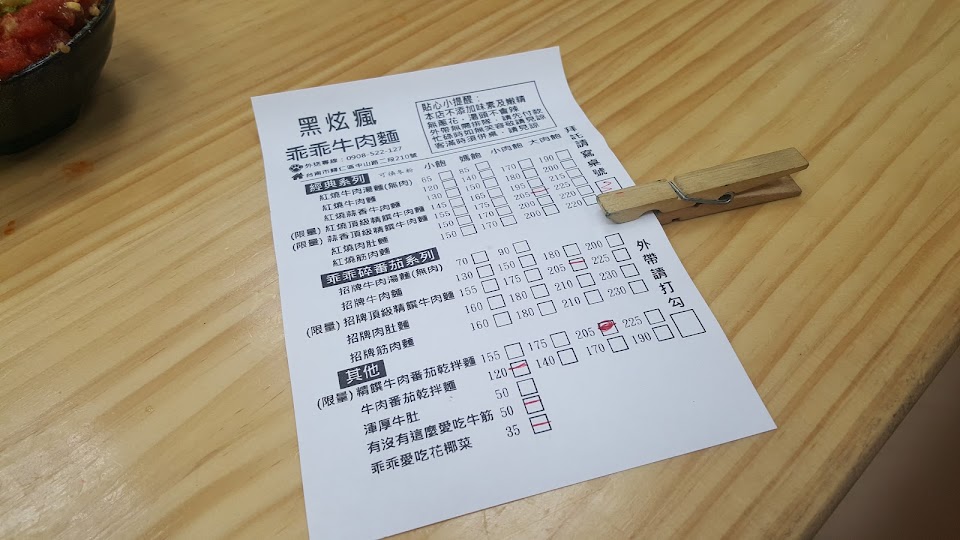 黑炫瘋
乖乖牛肉麵
外送專線:0908-522-127
台南市歸仁區中山路二段210號
貼心小提醒:
本店不添加味素及嫩精
無蔥花,湯頭不會辣
外帶無需排隊,請先付款
忙碌時如無笑容敬請見諒
客滿時須併桌,請見諒
拜託請寫桌號
經典系列 可換冬粉 小飽 媽飽 小肉飽 大肉飽
紅燒牛肉湯麵(無肉) 65 85
紅燒牛肉麵
紅燒蒜香牛肉麵
(限量)紅燒頂級精饌牛肉麵
(限量)蒜香頂級精饌牛肉麵
紅燒肉肚麵
紅燒筋肉麵
乖乖碎番茄系列
招牌牛肉湯麵(無肉) 70 90
招牌牛肉麵 130 150 180 200
(限量)招牌頂級精饌牛肉麵 155 175 205 225
招牌肉肚麵 160 180 210 230
招牌筋肉麵 160 180 210 230
外帶請打勾
其他
(限量)精饌牛肉番茄乾拌麵 155 175 205 225
牛肉番茄乾拌麵 120 140 170 190
渾厚牛肚 50
有沒有這麼愛吃牛筋 50
乖乖愛吃花椰菜 35